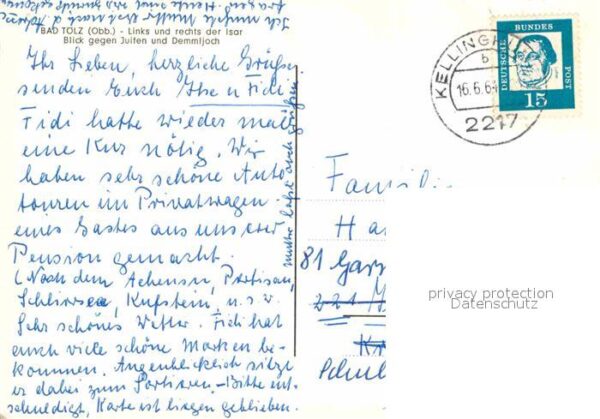 BAD TÖLZ (Obb.) - Links und rechts der Isar
Blick gegen Juifen und Demmljoch
Ihr Lieben, herzliche Grüße
senden Euch Ilse u Fidi
Fidi hatte wieder mal
eine Kur nötig. Wir
haben sehr schöne Auto
touren im Privatwagen
eines Gastes aus unserer
Pension gemacht.
(Nach dem Achensee,
Schliersee, Kufstein, u.s.w.
Sehr schönes Wetter. Fidi hat
auch viele schöne Marken be-
kommen. Augenblicklich sitzt
er dabei zum Sortieren. - Bitte ent-
schuldigt, Karte ist liegen geblieben.
Mutter läßt auch grüßen
KELLINGH
b
16.6.6
2217
DEUTSCHE BUNDESPOST
15
Famili
Ha
81 Gar
221
Kr
Schul
privacy protection
Datenschutz